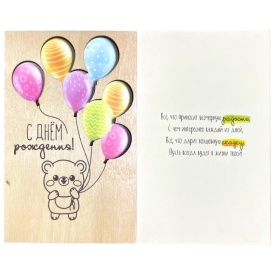 С ДНЁМ
рождения!
Всё, что приносит
радость,
С чем интересно каждый из дней,
Всё, что дарит волшебную сказку,
Пусть всегда будет в жизни твоей!